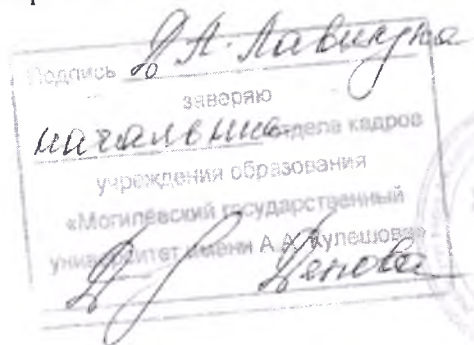 Подпись
заверяю
начальник отдела кадров
учреждения образования
«Могилёвский государственный
университет имени А.А. Кулешова»